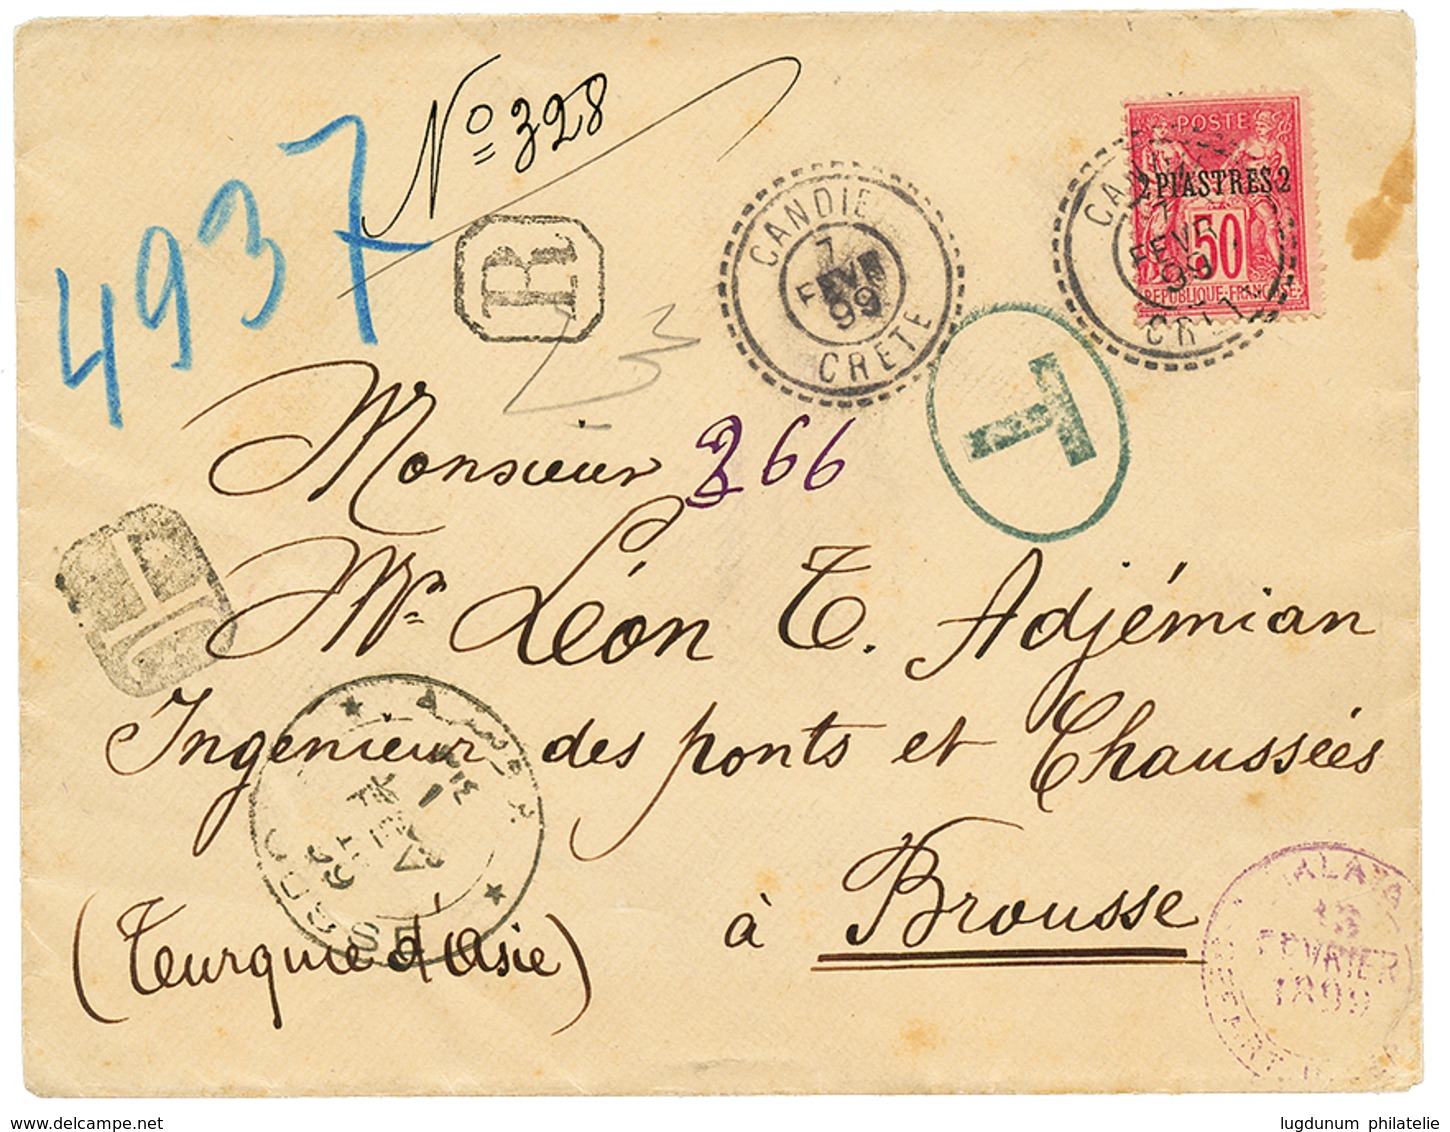 4937
Nº 328
R
CANDIE
7
FEVR
99
CRETE
POSTE
2 PIASTRES 2
50
REPUBLIQUE FRANÇAISE
7
FEVR
99
T
Monsieur 266
Mr Léon T. Adjémian
Ingénieur des ponts et Chaussées
à Brousse
(Turquie d'Asie)
T
GALATA
13
FEVRIER
1899
delcampe.net
lugdunum philatelie